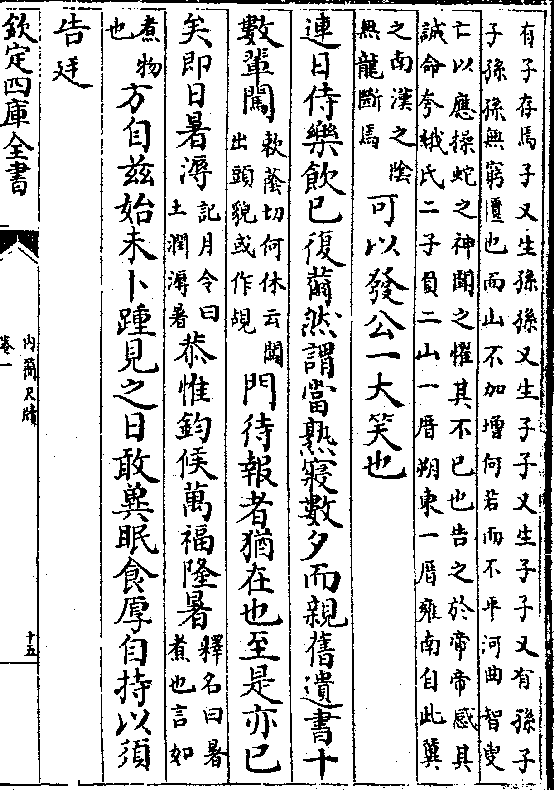 有子存焉子又生孫孫又生子子又生子子又有孫子
子孫孫無窮匱也而山不加增何若而不平河曲智叟
亡以應操蛇之神聞之懼其不已也告之於帝帝感其
誠命夸娥氏二子負二山一厝朔東一厝雍南自此冀
之南漢之陰
無龍斷焉
可以發公一大笑也
連日侍樂飲已復薾然謂當熟寢數夕而親舊遺書十
數輩闖
欸蔭切何休云闖
出頭貌或作覘
門待報者猶在也至是亦已
矣即日暑溽
記月令曰
土潤溽暑
恭惟鈞候萬福隆暑
釋名曰暑
煮也言如
煮物
也
方自茲始未卜踵見之日敢冀眠食厚自持以須
告廷
欽定四庫全書
內簡尺牘
卷一
十五